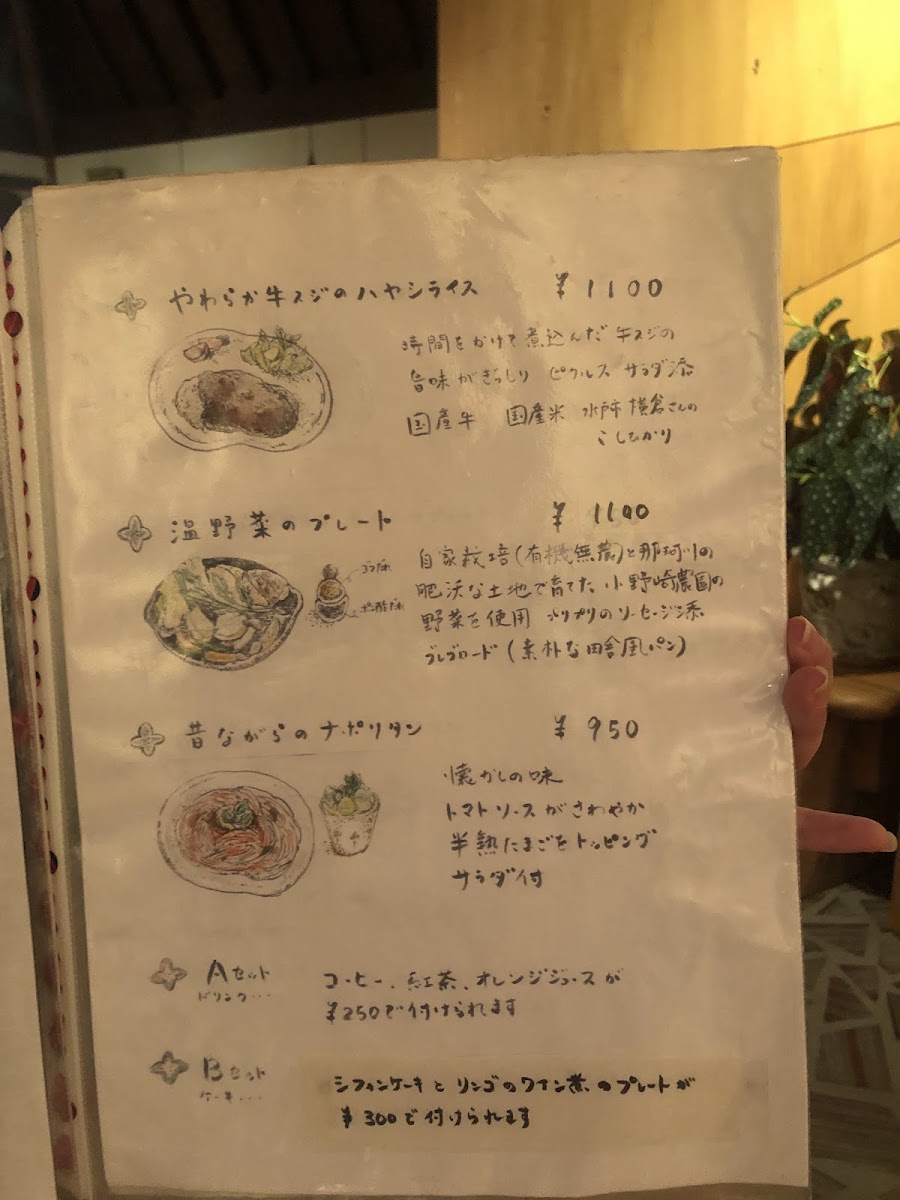 やわらか牛スジのハヤシライス ¥1100
時間をかけて煮込んだ牛スジの
旨味がぎっしり ピクルス サラダ添
国産牛 国産米 水戸市横倉さんの
こしひかり
温野菜のプレート ¥1100
ゴマだれ
自家栽培(有機無農)と那珂川の
肥沃な土地で育てた 小野崎農園の
野菜を使用 プリプリのソーセージ添
(素朴な田舎風パン)
昔ながらのナポリタン ¥950
懐かしの味
トマトソースがさわやか
半熟たまごをトッピング
サラダ付
Aセット
ドリンク・・・
コーヒー、紅茶、オレンジジュースが
¥250で付けられます
Bセット
ケーキ・・・
シフォンケーキとリンゴのワイン煮のプレートが
¥300で付けられます